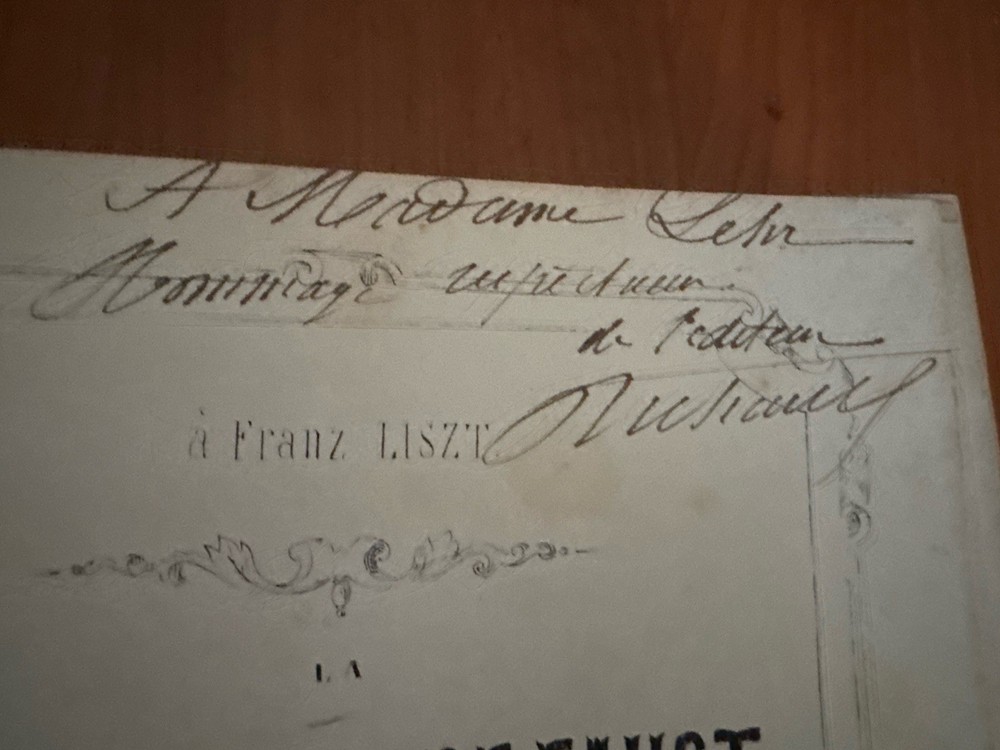 A Madame Lehr
Hommage respectueux
de l'editeur
Richault
à Franz LISZT
LA